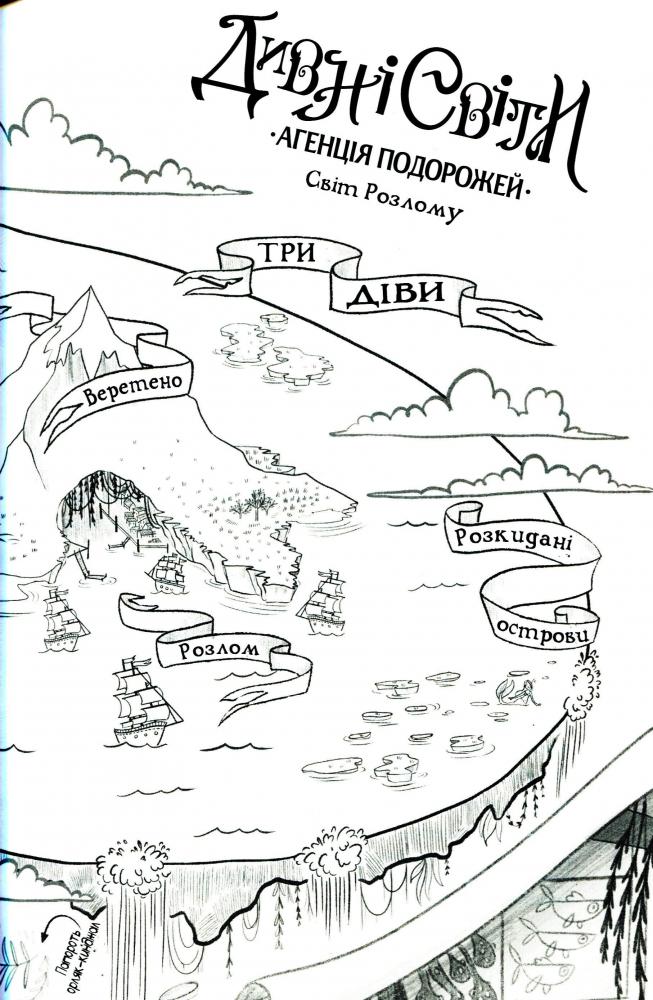 Дивні Світи
·АГЕНЦІЯ ПОДОРОЖЕЙ·
Світ Розлому
ТРИ
ДІВИ
Веретено
Розкидані
острови
Розлом
Папороть
орляк-кинджал